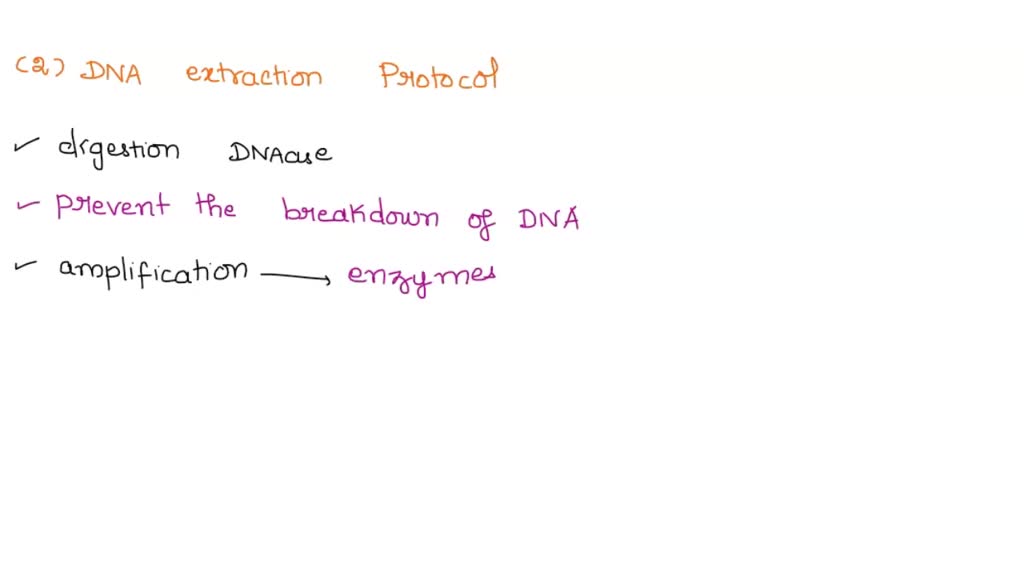 (2) DNA extraction Protocol
✓ digestion DNAase
✓ prevent the breakdown of DNA
✓ amplification → enzymes